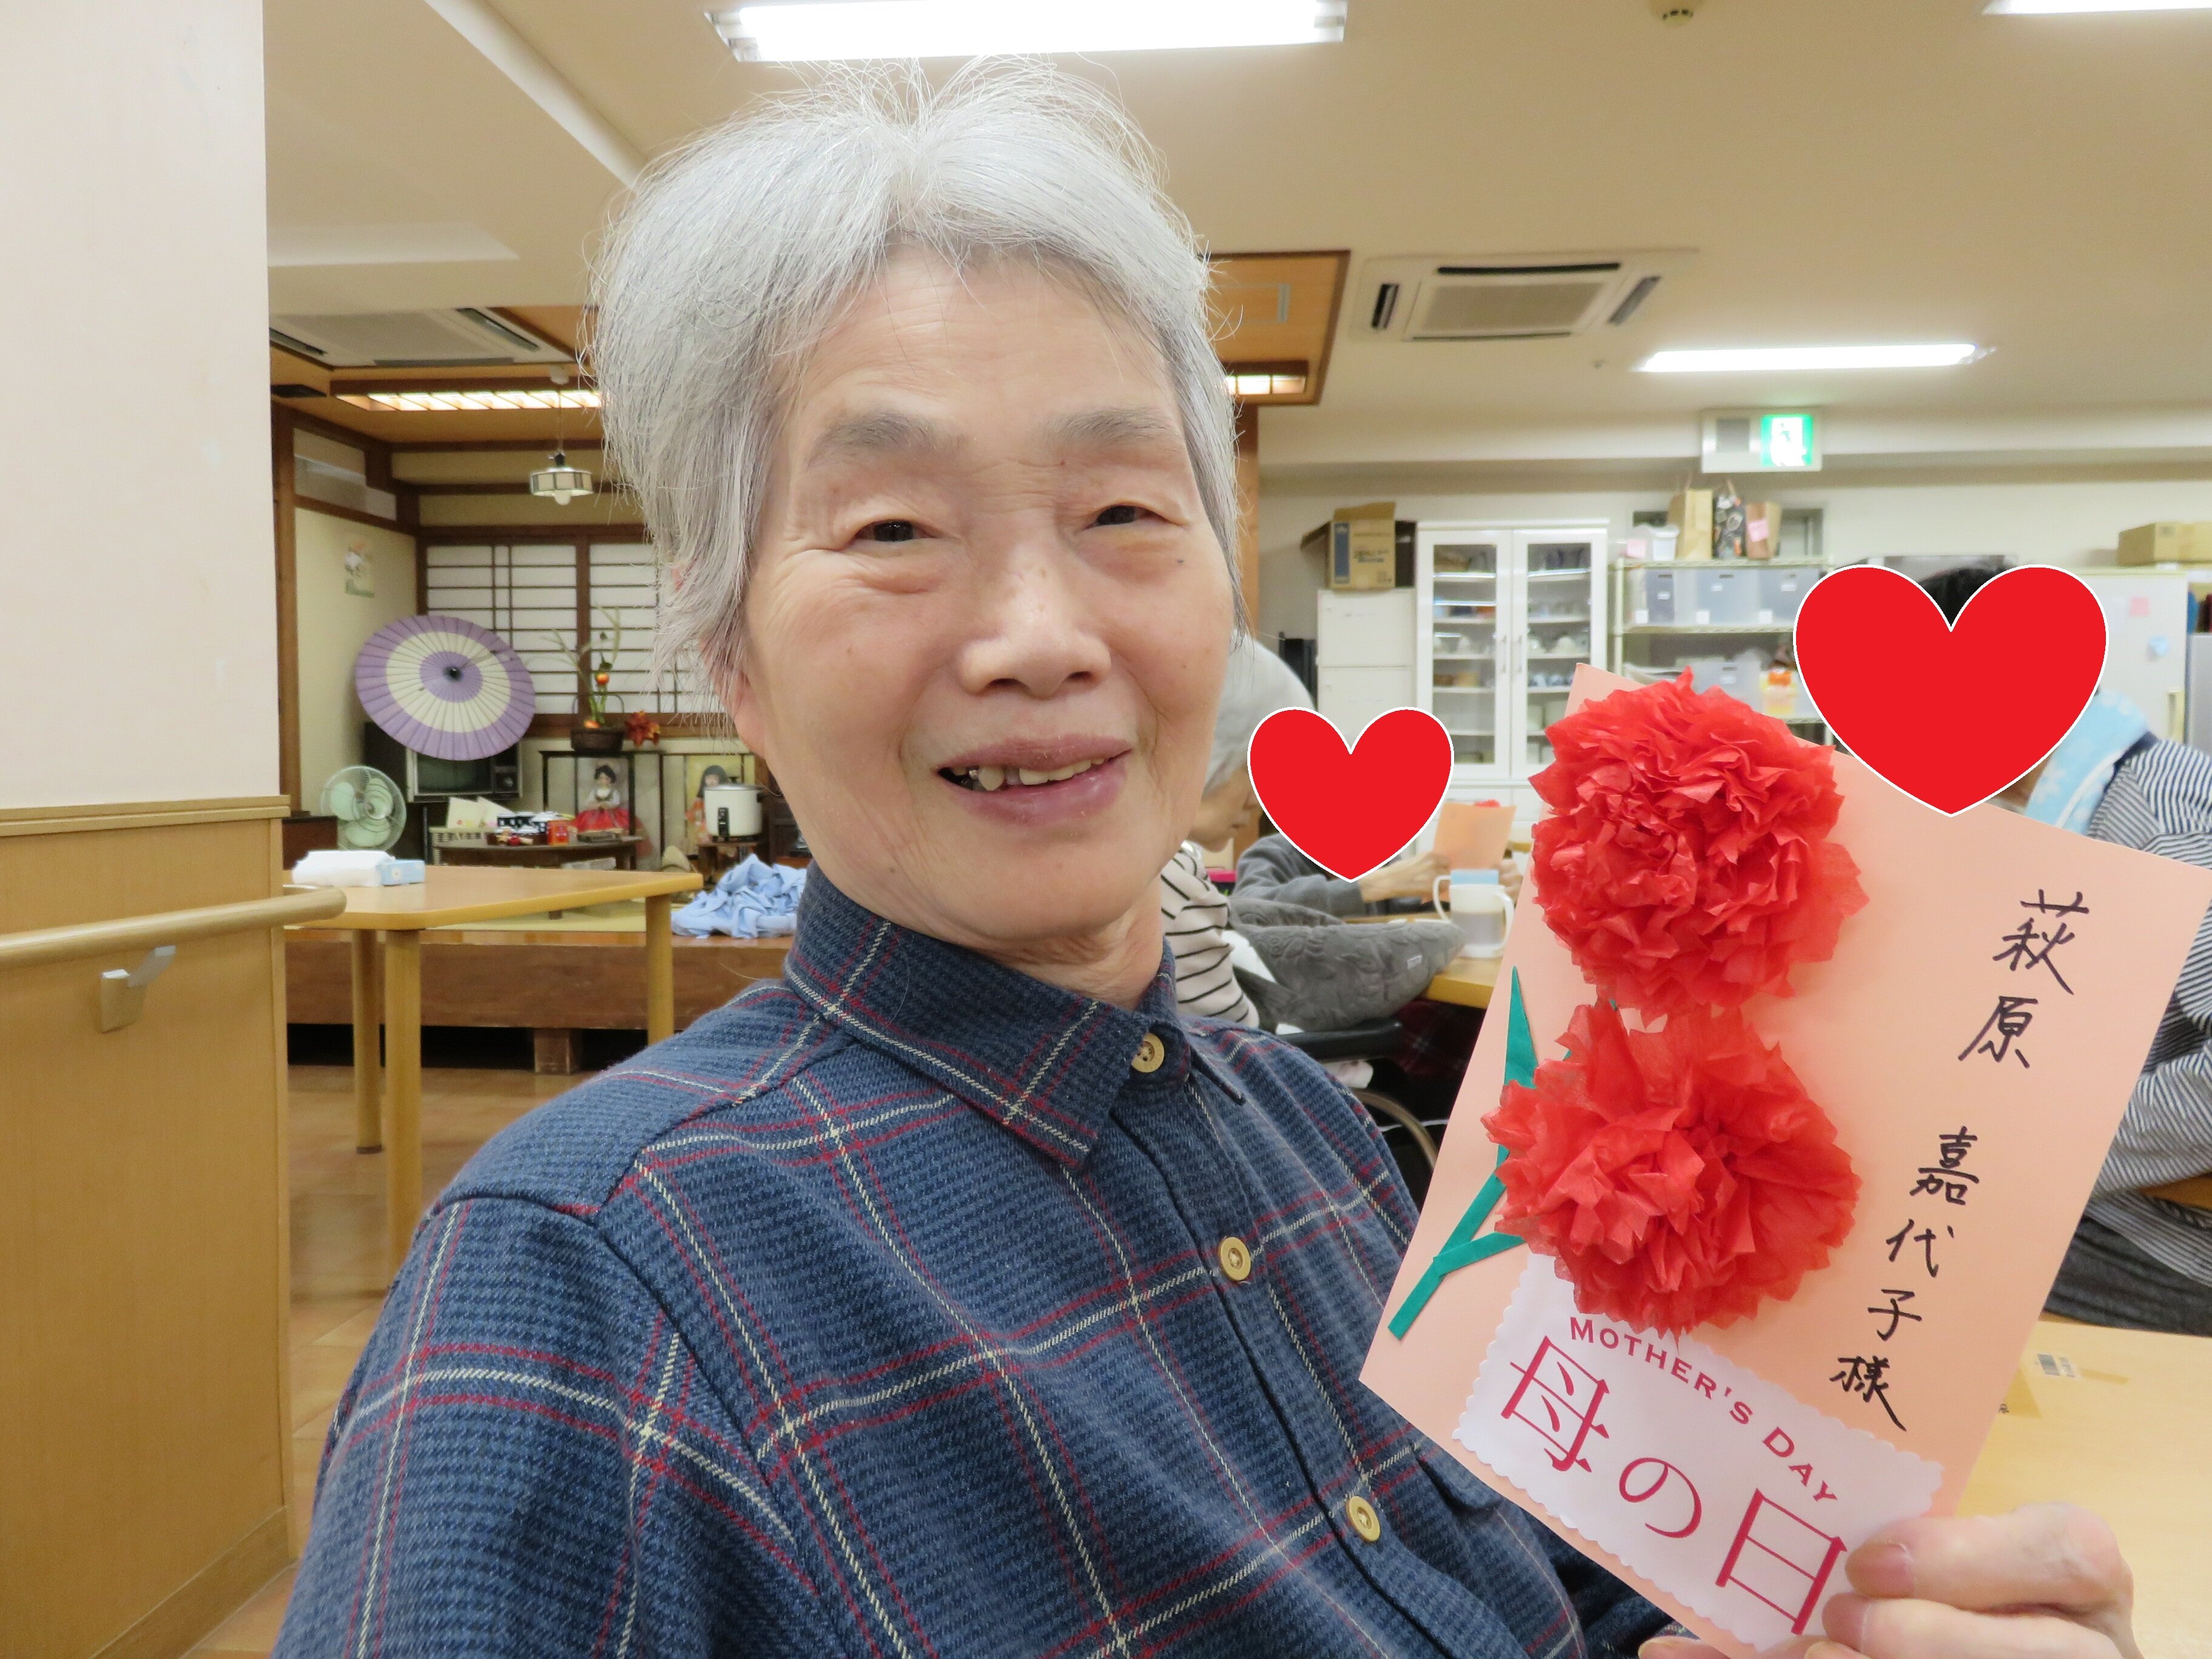 萩原 嘉代子様
MOTHER'S DAY
母の日